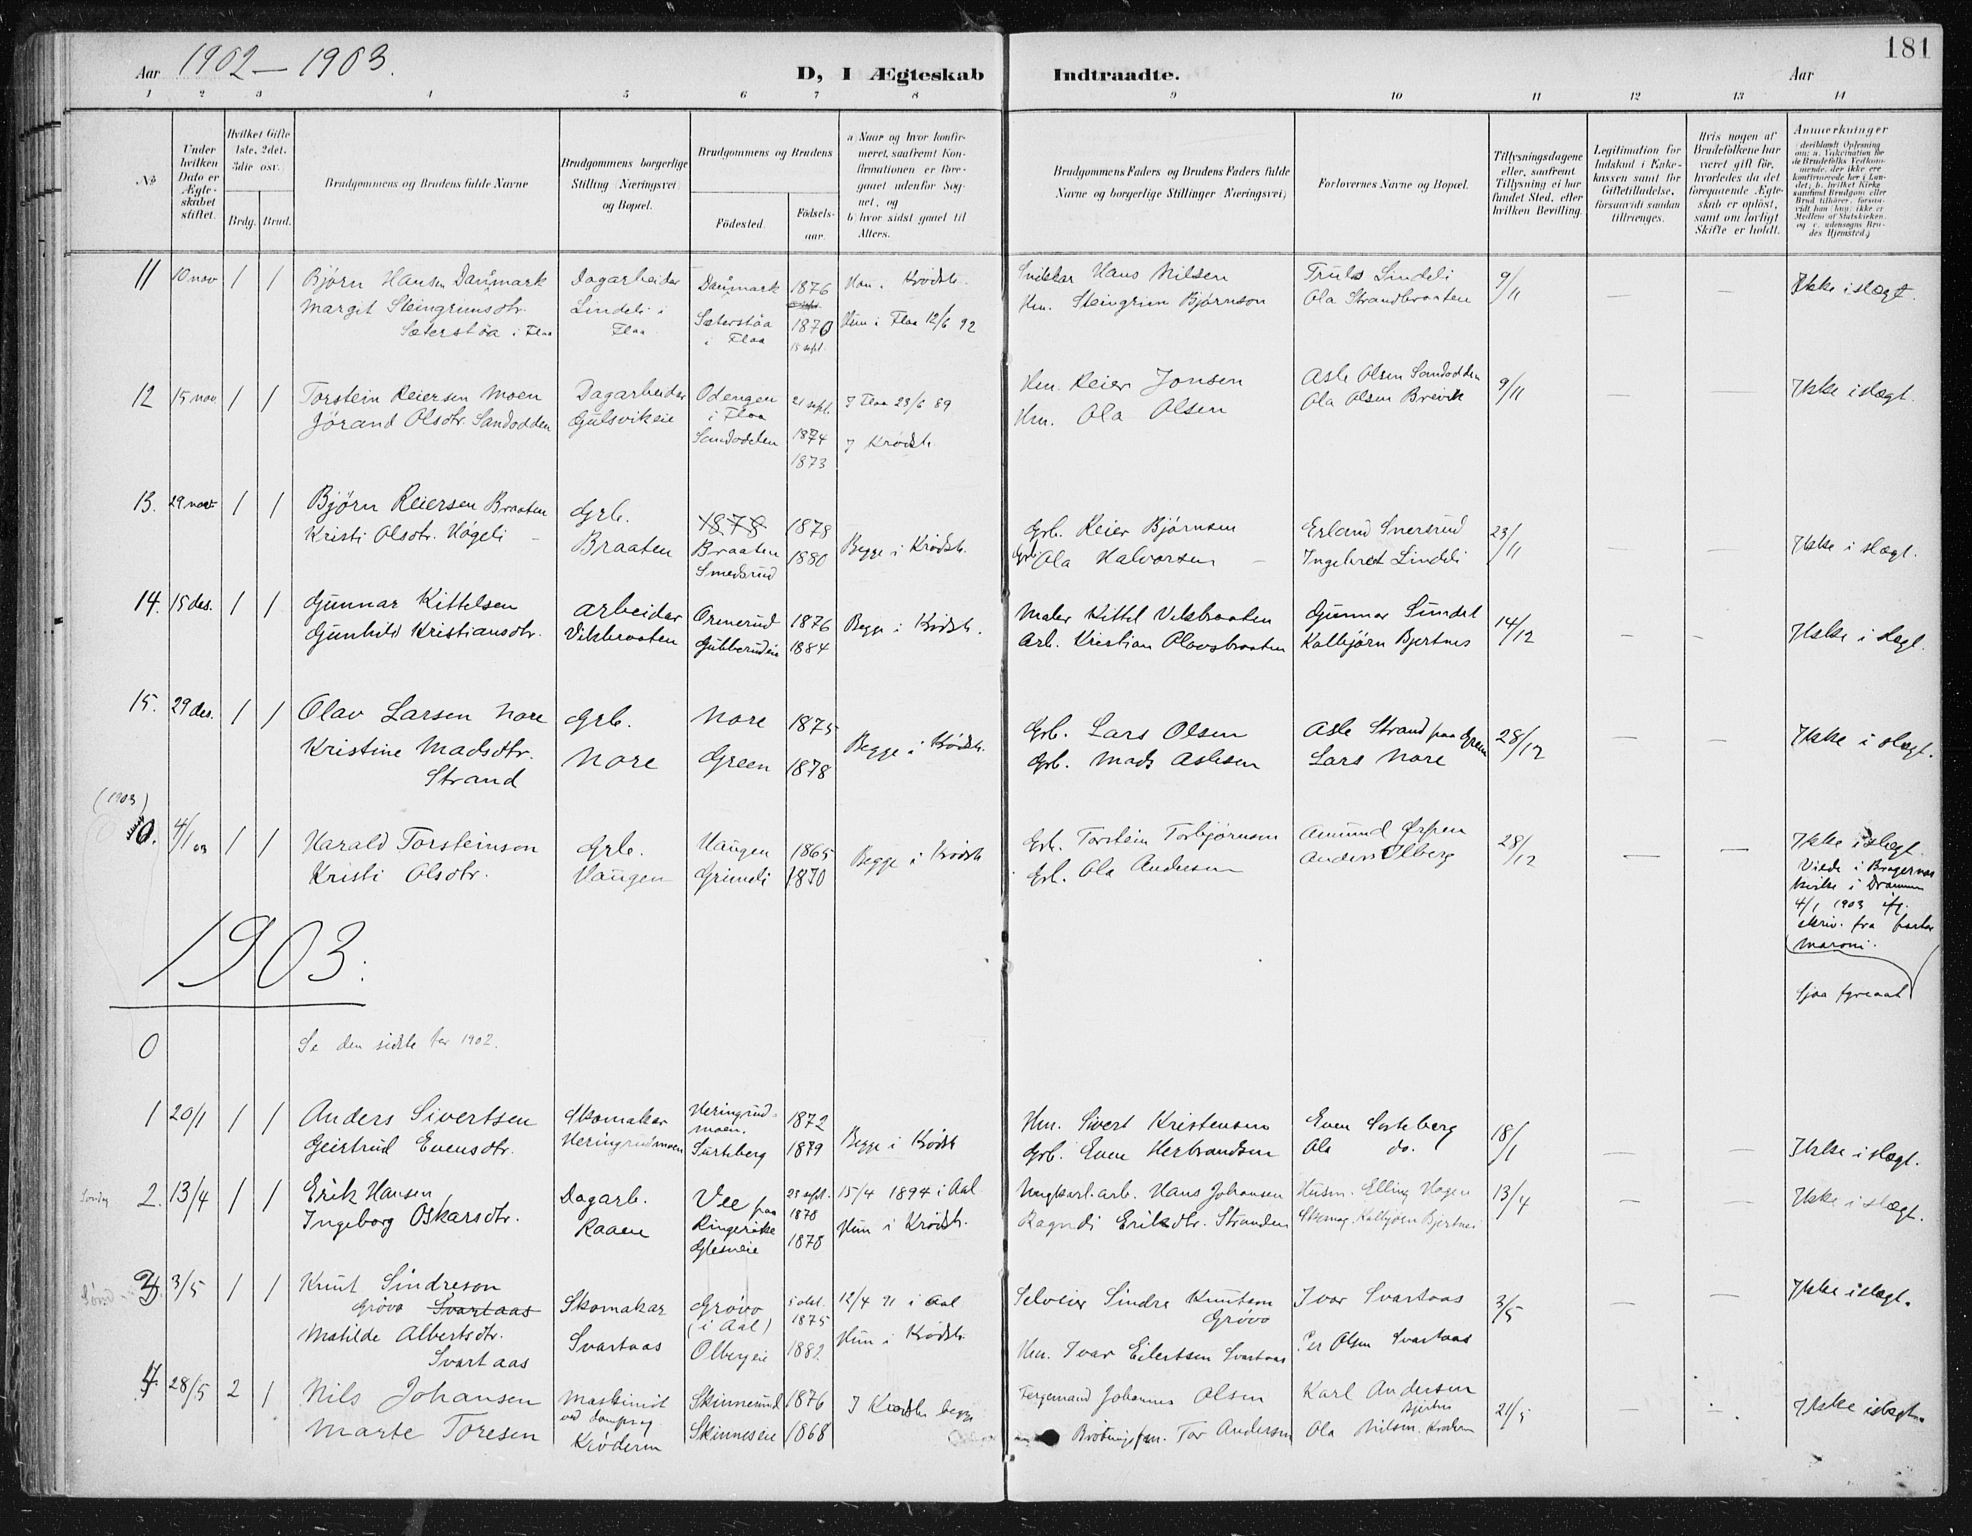 181
Aar 1902–1903.
D, I Ægteskab Indtraadte.
Aar
1 2 3 4 5 6 7 8 9 10 11 12 13 14
No
Under hvilken Dato er Ægteskabet stiftet.
Hvilket Gifte 1ste, 2det, 3die osv.
Brdg. Brud.
Brudgommens og Brudens fulde Navne
Brudgommens borgerlige Stilling (Næringsvei) og Bopæl.
Brudgommens og Brudens
Fødested.
Fødselsaar.
a) Naar og hvor konfirmeret, saafremt Konfirmationen er foregaaet udenfor Sognet, og
b) hvor sidst gaaet til Alters.
Brudgommens Faders og Brudens Faders fulde Navne og borgerlige Stillinger (Næringsvei)
Forlovernes Navne og Bopæl.
Tillysningsdagene eller, saafremt Tillysning ei har fundet Sted, efter hvilken Bevilling.
Legitimation for Indskud i Enkekassen samt for Giftetilladelse, forsaavidt saadan tiltrænges.
Hvis nogen af Brudefolkene har været gift før, hvorledes da det foregaaende Ægteskab er opløst, samt om lovligt Skifte er holdt.
Anmerkninger
11 10 nov 1 1 Bjørn Hansen Danmark Dagarbeider Danmark 1876 Han. Krødsh. Snekker Hans Nilsen Truls Lindeli 9/11 — — Ikke i slægt.
Margit Steingrimsdtr. Lindeli i Sæterstøa 1870 Hun i Flaa 12/6 92 Hm. Steingrim Bjørnson Ola Strandbraaten
Sæterstøa i Flaa Flaa i Flaa 15 sept.
12 15 nov 1 1 Torstein Reiersen Moen Dagarbeider Odengen 21 sept. I Flaa 23/6 89 Hm. Reier Jonsen Asle Olsen Sandodden 9/11 — — Ikke i slægt.
Jørand Olsdtr. Sandodden Gulsvikeie i Flaa 1874 Hm. Ola Olsen Ola Olsen Brevik
Sandodden 1873 I Krødsh.
13. 29 nov 1 1 Bjørn Reiersen Braaten Grb. 1878 1878 Grb. Reier Bjørnsen Erland Snersrud 23/11 — — Ikke i slægt.
Kristi Olsdtr. Høgeli Braaten Braaten 1880 Begge i Krødsh. Grb. Ola Halvorsen Ingebret Lindeli
Smedsrud
14. 15 des. 1 1 Gunnar Kittelsen arbeider Ormerud 1876 Begge i Krødsh. Maler Kittil Vikbraaten Gunnar Sundet 14/12 — — Ikke i slægt.
Gunhild Kristiansdtr. Vikbraaten Gubberudeie 1884 Arb. Kristian Olavsbraaten Kolbjørn Bjertnes
15. 29 des. 1 1 Olav Larsen Nore Grb. Nore 1875 Begge i Krødsh. Grb. Lars Olsen Asle Strand paa Green 28/12 — — Ikke i slægt.
Kristine Madsdtr. Nore Green 1878 Grb. Mads Aslesen Lars Nore
Strand
(1903)
0. 4/1 03 1 1 Harald Torsteinson Grb. Haugen 1865 Begge i Krødsh. Grb. Torstein Torbjørnsen Amund Ørpen 28/12 — — Ikke i slægt.
Kristi Olsdtr. Haugen Grimeli 1870 Grb. Ola Andersen Anders Olberg
Viede i Bragernes kirke i Drammen 4/1 1903 ifg. skriv. fra pastor Maroni.
1903:
0 Se den sidste for 1902.
1 20/1 1 1 Anders Sivertsen Skomaker Heringrudmoen. 1872 Begge i Krødsh. Hm. Sivert Kristensen Even Sorteberg 18/1 — — Ikke i slægt.
Geirtrud Evensdtr. Heringrudmoen Surteberg 1879 Grb. Even Herbrandsen Ola do.
2. 13/4 1 1 Erik Hansen Dagarb. Vee paa Ringerike 1878 15/4 1894 i Aal Ungkarl.arb. Hans Johansen Husm. Elling Hagen 13/4 — — Ikke i slægt.
Ingeborg Oskarsdtr. Raaen Glesneeie 1878 Hun i Krødsh. Ragndi Eriksdtr. Stranden Skomag. Kolbjørn Bjertnes
3 3/5 1 1 Knut Sindreson Skomaker Grøvo (i Aal) 5 okt. 1875 12/4 91 i Aal Selveier Sindre Knutson Grøvo Ivar Svartaas 3/5 — — Ikke i slægt.
Grøvo Svartaas
Matilde Albertsdtr. Svartaas Olbergeie 1882 Hun i Krødsh. Hm. Ivar Eilertsen Svartaas Per Olsen Svartaas
Svartaas
4 28/5 2 1 Nils Johansen Maskinist ved dampsag Skinnerud 1876 I Krødsh. begge Fergemand Johannes Olsen Karl Andersen Bjertnes 21/5 — — Ikke i slægt.
Marte Toresen Krøderen Skinneseie 1868 Tor Andersen Ola Nilsen. Krøderen